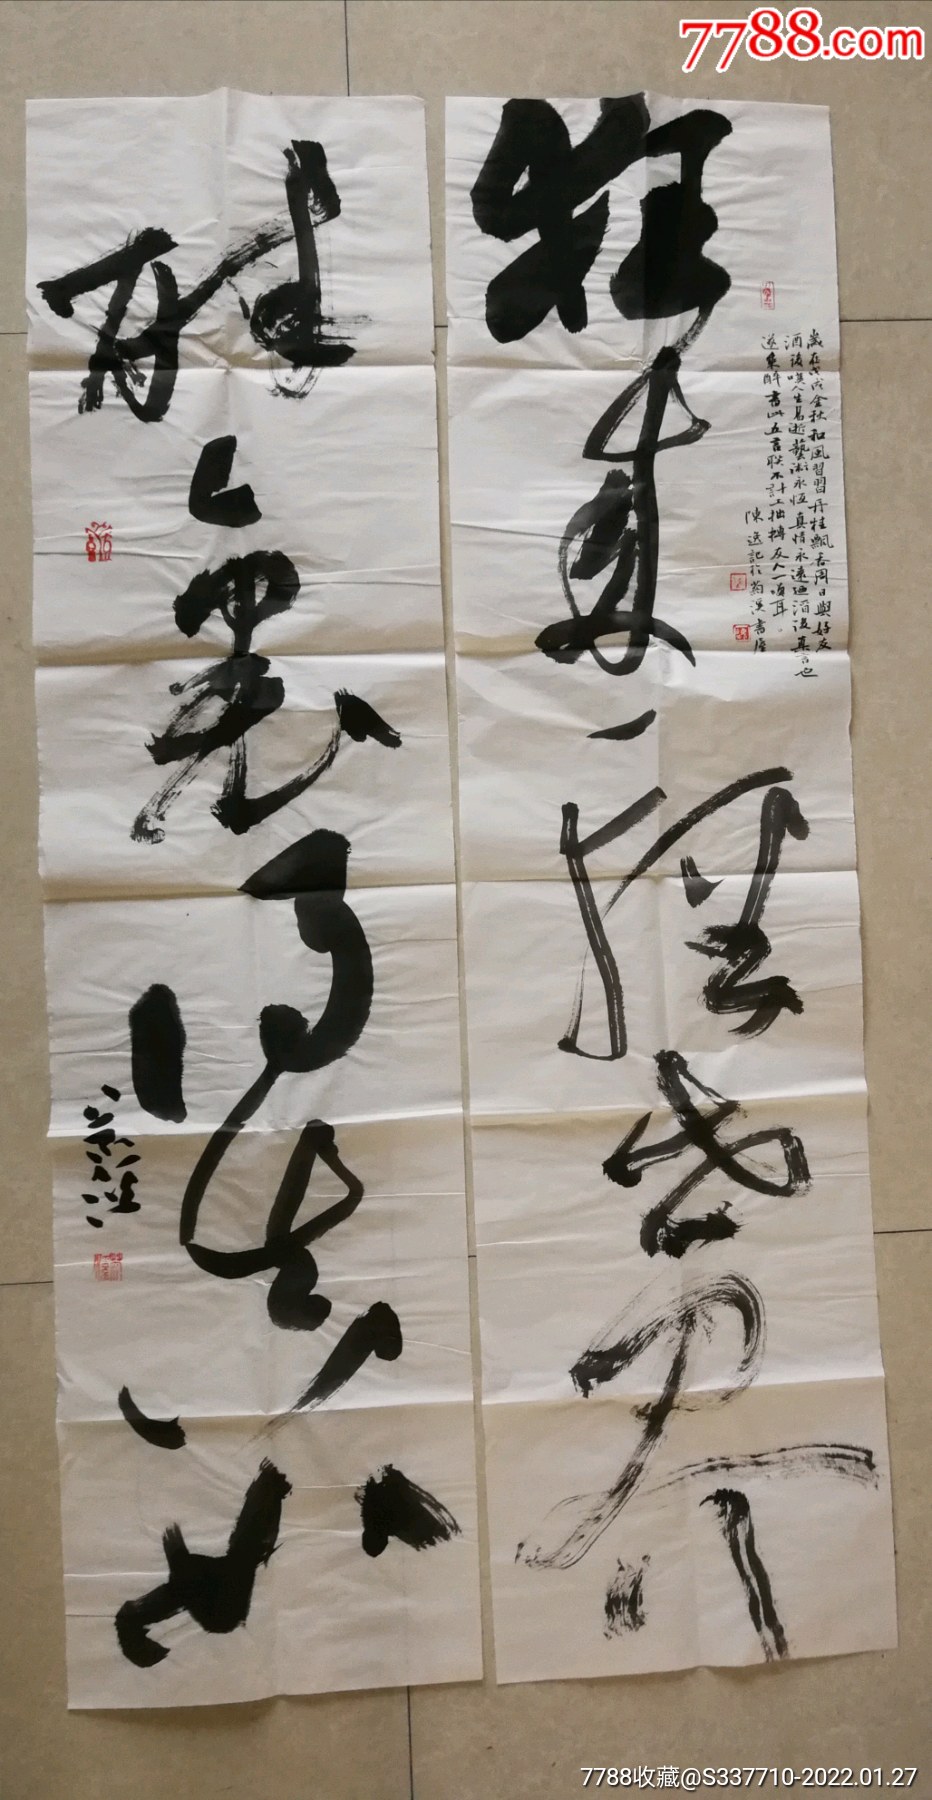 7788.com
狂來輕世界
歲在戊戌金秋和風習習丹桂飄香周日與好友
酒後嘆人生易逝藝術永恆真情永遠迺酒後真言也
遂乘醉書此五言联不計工拙博友人一
記於
溪書屋
醉裏得真如
7788收藏@S337710-2022.01.27